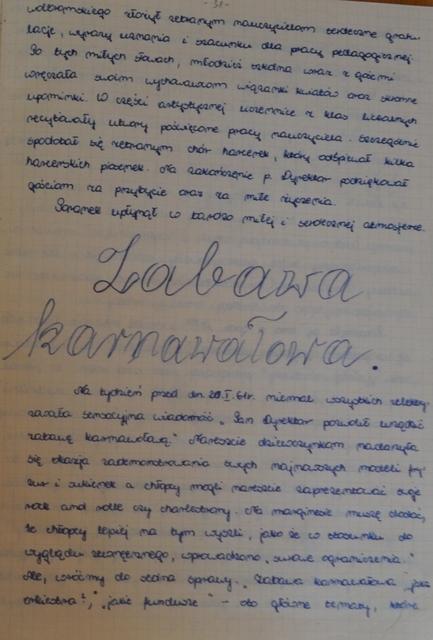 - 31 -
wolbromskiego złożył zebranym nauczycielom serdeczne gratu-
lacje, wyrazy uznania i szacunku dla pracy pedagogicznej.
Po tych miłych słowach, młodzież szkolna wraz z gośćmi
wręczała swoim wychowawcom wiązanki kwiatów oraz skromne
upominki. W części artystycznej uczennice z klas
recytowały utwory poświęcone pracy nauczyciela. Szczególnie
spodobał się zebranym chór harcerek, który odśpiewał kilka
harcerskich piosenek. Na zakończenie p. Dyrektor podziękował
gościom za przybycie oraz za miłe życzenia.
Poranek upłynął w bardzo miłej i serdecznej atmosferze.
Zabawa
karnawałowa.
Na tydzień przed dn. 28.I.61r. niemal wszystkich zelektry-
zowała sensacyjna wiadomość „Pan Dyrektor pozwolił urządzić
zabawę karnawałową." Nareszcie dziewczynkom nadarzyła
się okazja zademonstrowania swych najnowszych modeli fry-
zur i sukienek a chłopcy mogli nareszcie zaprezentować swoje
rock and rolle czy charlestony. Na marginesie muszę dodać,
że chłopcy lepiej na tym wyszli, jako że w stosunku do
wyglądu zewnętrznego, wprowadzono „ograniczenia."
Ale, wróćmy do sedna sprawy. „Zabawa karnawałowa", „jaka
orkiestra?", „jakie fundusze" - oto główne tematy, które